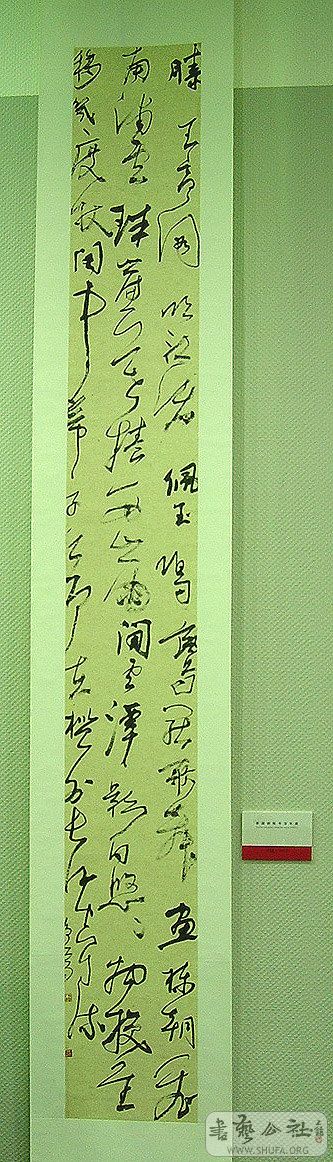 滕王高閣臨江渚佩玉鳴鸞罷歌舞畫棟朝飛
南浦雲珠簾暮捲西山雨閒雲潭影日悠悠物換星
移幾度秋閣中帝子今何在檻外長江空自流
書藝公社
WWW.SHUFA.ORG